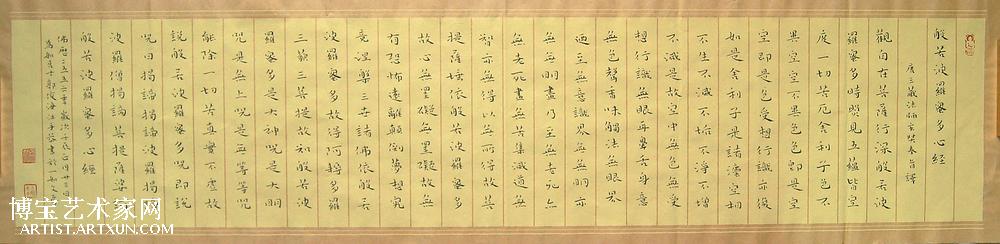 般若波羅蜜多心經
唐三藏法師玄奘奉旨譯
觀自在菩薩行深般若波
羅蜜多時照見五蘊皆空
度一切苦厄舍利子色不
異空空不異色色即是空
空即是色受想行識亦復
如是舍利子是諸灋空相
不生不滅不垢不淨不增
不減是故空中無色無受
想行識無眼耳鼻舌身意
無色聲香味觸法無眼界
迺至無意識界無無明亦
無無明盡乃至無老死亦
無老死盡無苦集滅道無
智亦無得以無所得故菩
提薩埵依般若波羅蜜多
故心無罣礙無罣礙故無
有恐怖遠離顛倒夢想究
竟涅槃三世諸佛依般若
波羅蜜多故得阿耨多羅
三藐三菩提故知般若波
羅蜜多是大神呪是大明
呪是無上呪是無等等呪
能除一切苦真實不虛故
說般若波羅蜜多呪即說
呪曰揭諦揭諦波羅揭諦
波羅僧揭諦菩提薩婆
般若波羅蜜多心經
佛歷二五五二年歲次戊子正月廿三日
博宝艺术家网
ARTIST.ARTXUN.COM